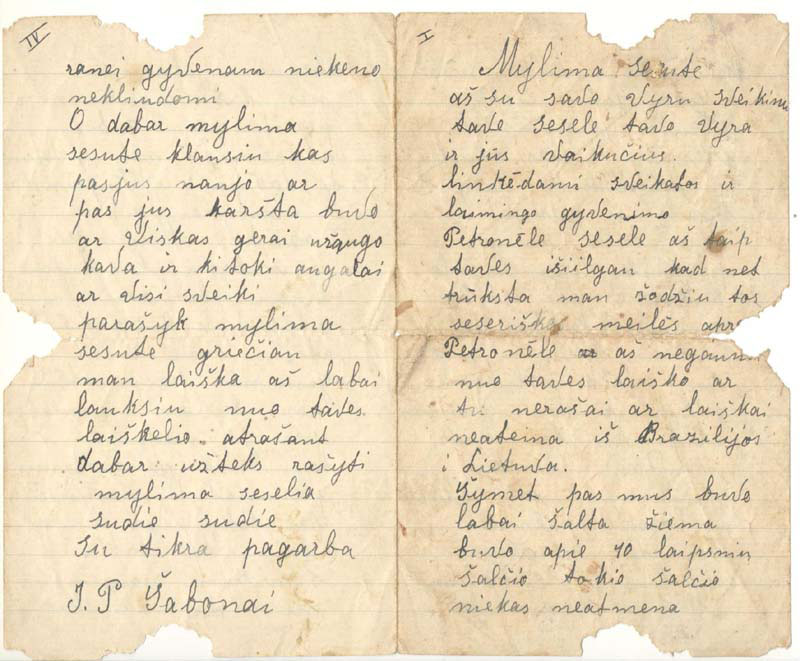 IV
ranei gyvenam niekeno
nekliudomi
O dabar mylima
sesute klausiu kas
pasjus naujo ar
pas jus karšta buvo
ar viskas gerai užgugo
kava ir kitoki augalai
ar visi sveiki
parašyk mylima
sesute griečiau
man laiška aš labai
lauksiu nuo taves
laiškelio atrašant
dabar užteks rašyti
mylima seselia
sudie sudie
su tikra pagarba
J. P Šabonai
I
Mylima sesute
aš su savo vyru sveikinu
tave sesele tavo vyra
ir jūs vaikučius.
linkėdami sveikatos ir
laimingo gyvenimo
Petronėle sesele aš taip
taves išiilgau kad net
trūksta man žodžiu tos
seseriškos meilės
Petronėle aš negaunu
nuo taves laiško ar
tu nerašai ar laiškai
neateina iš Brazilijos
i Lietuva.
Šymet pas mus buvo
labai šalta žiema
buvo apie 40 laipsniu
šalčio tokio šalčio
niekas neatmena